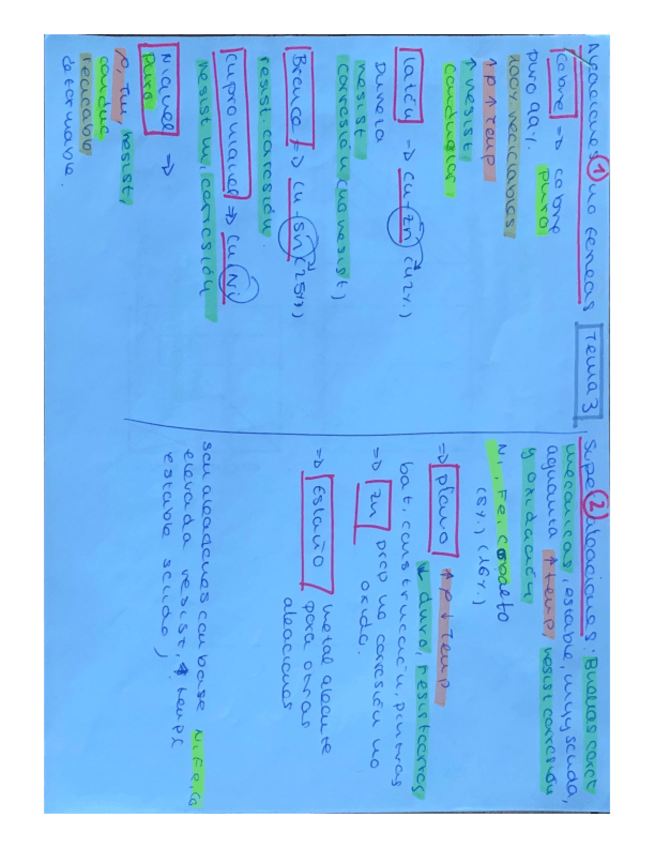 Aleaciones ① no férreas
Cobre => cobre
puro 99%. puro
100% reciclables
↑ρ ↑temp
↑ resist,
conductor,
latón => Cu-Zn (42%)
dureza
resist
corrosión (no resist)
Bronce => Cu-Sn (25%)
resist. corrosión
Cuproniquel => Cu Ni
resist m, corrosión
Niquel =>
puro
ρ, Tm, resist,
conduc
reciclable
deformable.
Tema 3
Supe② aleaciones: Buenas caract
mecanicas, estable, muy
aguanta ↑temp, resist corrosión
y oxidación
Ni, Fe, cobalto
(8%) (16%)
=> plomo ↑ρ ↓temp
↓ duro, resist
bat, construcción, pintras
=> Zn prop no corrosión no
oxida.
=> Estaño metal aleante
para otras
aleaciones
son aleaciones con base Ni, Fe, Co
elevada resist, temp
estable